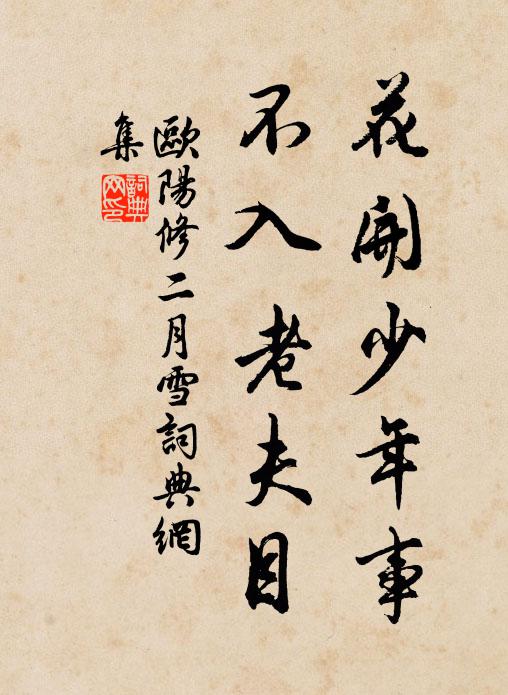 花開少年事
不入老夫目
歐陽修二月雪詞典網
集
詞典
网印